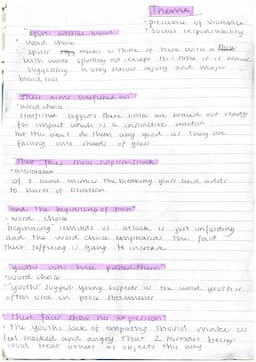 Theme
· presence of violence
· social responsibility
"spurt arterial blood"
· word choice
'spurt' makes us think of hose with a
with water spurting out except this time it is blood
suggesting a very severe injury and major
blood loss
"Their arms starfished out"
· word choice
Starfished suggests their arms are braced out ready
for impact which is a instinctive reaction
but this won't do them any good as they are
falling into shards of glass
"Their faces show surprise, shock"
· alliteration
of S sound mimics the breaking glass and adds
to horror of situation
"and the beginning of pain"
· word choice
'beginning' reminds us attack is just unfolding
and the word choice emphasises the fact
their suffering is going to increase
"youths who have pushed them"
· word choice
"youths" suggest young suspects as the word youth is
often used in police statements
"Their faces show no expression"
· The youths lack of empathy should makes us
feel shocked and angry that 2 human beings
could treat others as objects this way